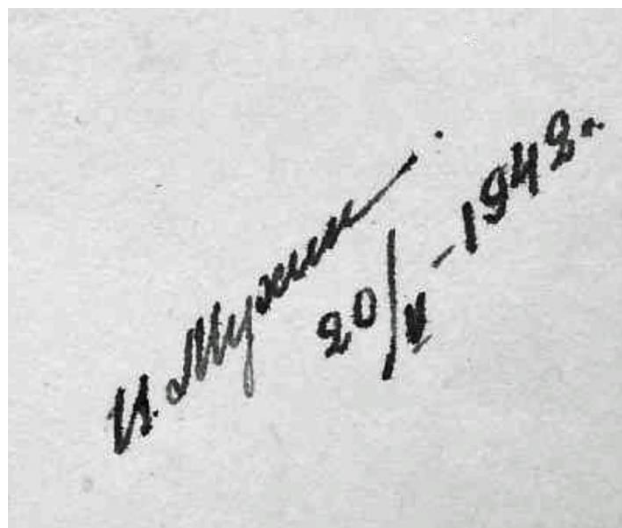 И. Мухин.
20/V-1942г.